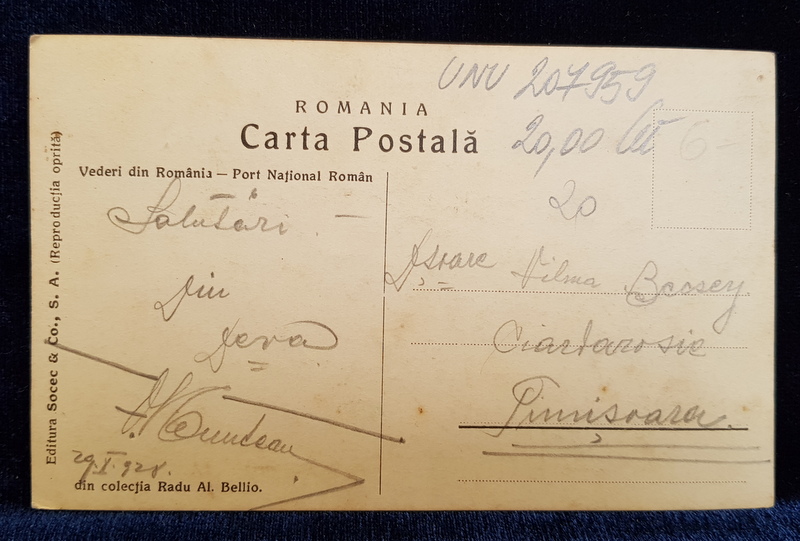 UNU 207959
20,00 lei
6-
20
ROMANIA
Carta Postală
Vederi din România — Port Național Român
Salutări
Din
Deva
Munteanu
29.X.928.
din colecția Radu Al. Bellio.
Editura Socec & Co., S. A. (Reproducția oprită)
Dșoare Vilma
Timișoara.